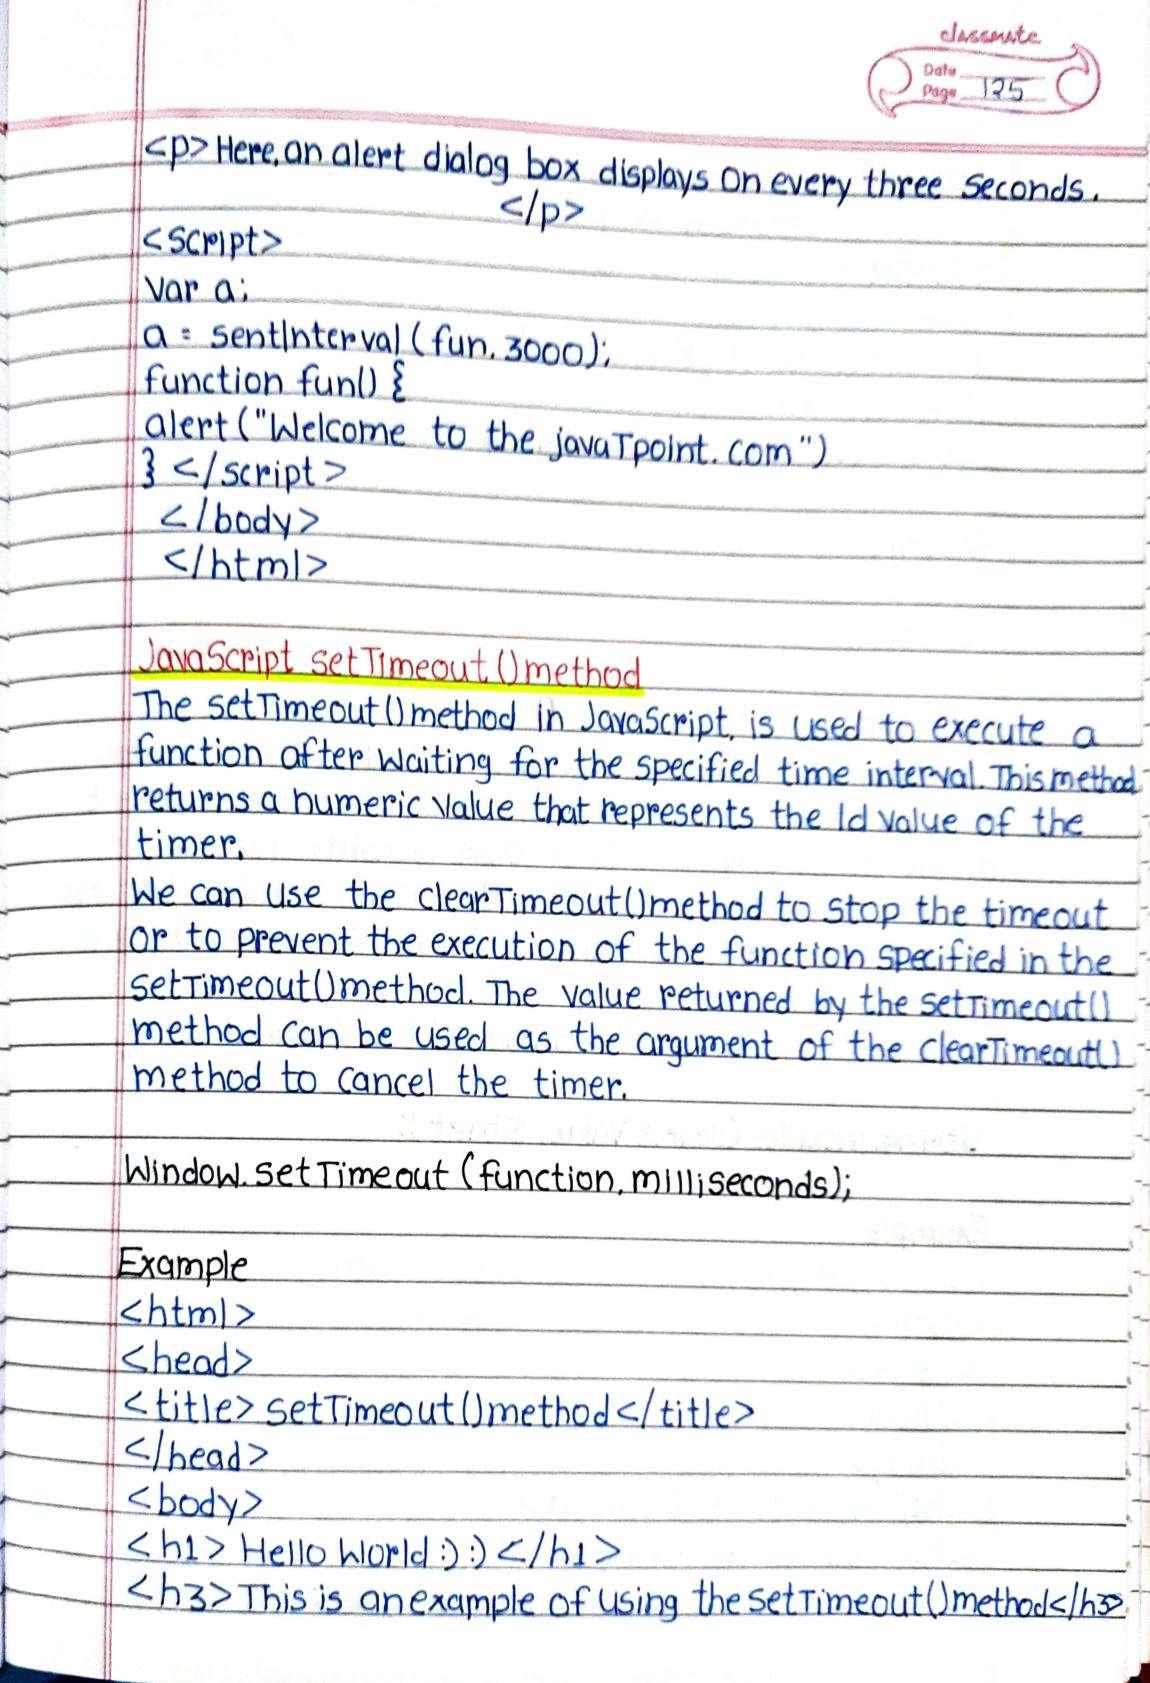 classmate
Date
Page 125
<p> Here, an alert dialog box displays on every three seconds.
</p>
<script>
var a;
a = sentInterval (fun, 3000);
function fun() {
alert ("Welcome to the javaTpoint.com")
} </script>
</body>
</html>
JavaScript setTimeout() method
The setTimeout() method in JavaScript, is used to execute a
function after waiting for the specified time interval. This method
returns a numeric value that represents the Id value of the
timer.
We can use the clearTimeout() method to stop the timeout
or to prevent the execution of the function specified in the
setTimeout() method. The value returned by the setTimeout()
method can be used as the argument of the clearTimeout()
method to cancel the timer.
Window.setTimeout (function, milliseconds);
Example
<html>
<head>
<title> setTimeout() method </title>
</head>
<body>
<h1> Hello World :) :) </h1>
<h3> This is an example of using the setTimeout() method </h3>